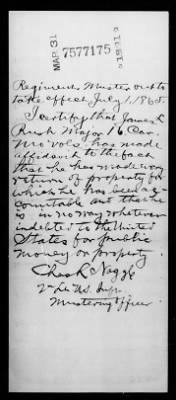 MAR 31
7577175
1921
Regiments Muster out to
take effect July 1, 1865.
I certify that James
Rush Major 16 Cav.
Mo Vols. has made
affidavit to the fact
that he has made every
return of property for
which he has been ac-
countable and that he
is in no way whatever
indebted to the United
States for public
money or property.
Chas R.
2" Lt U.S. Infy.
Mustering Officer